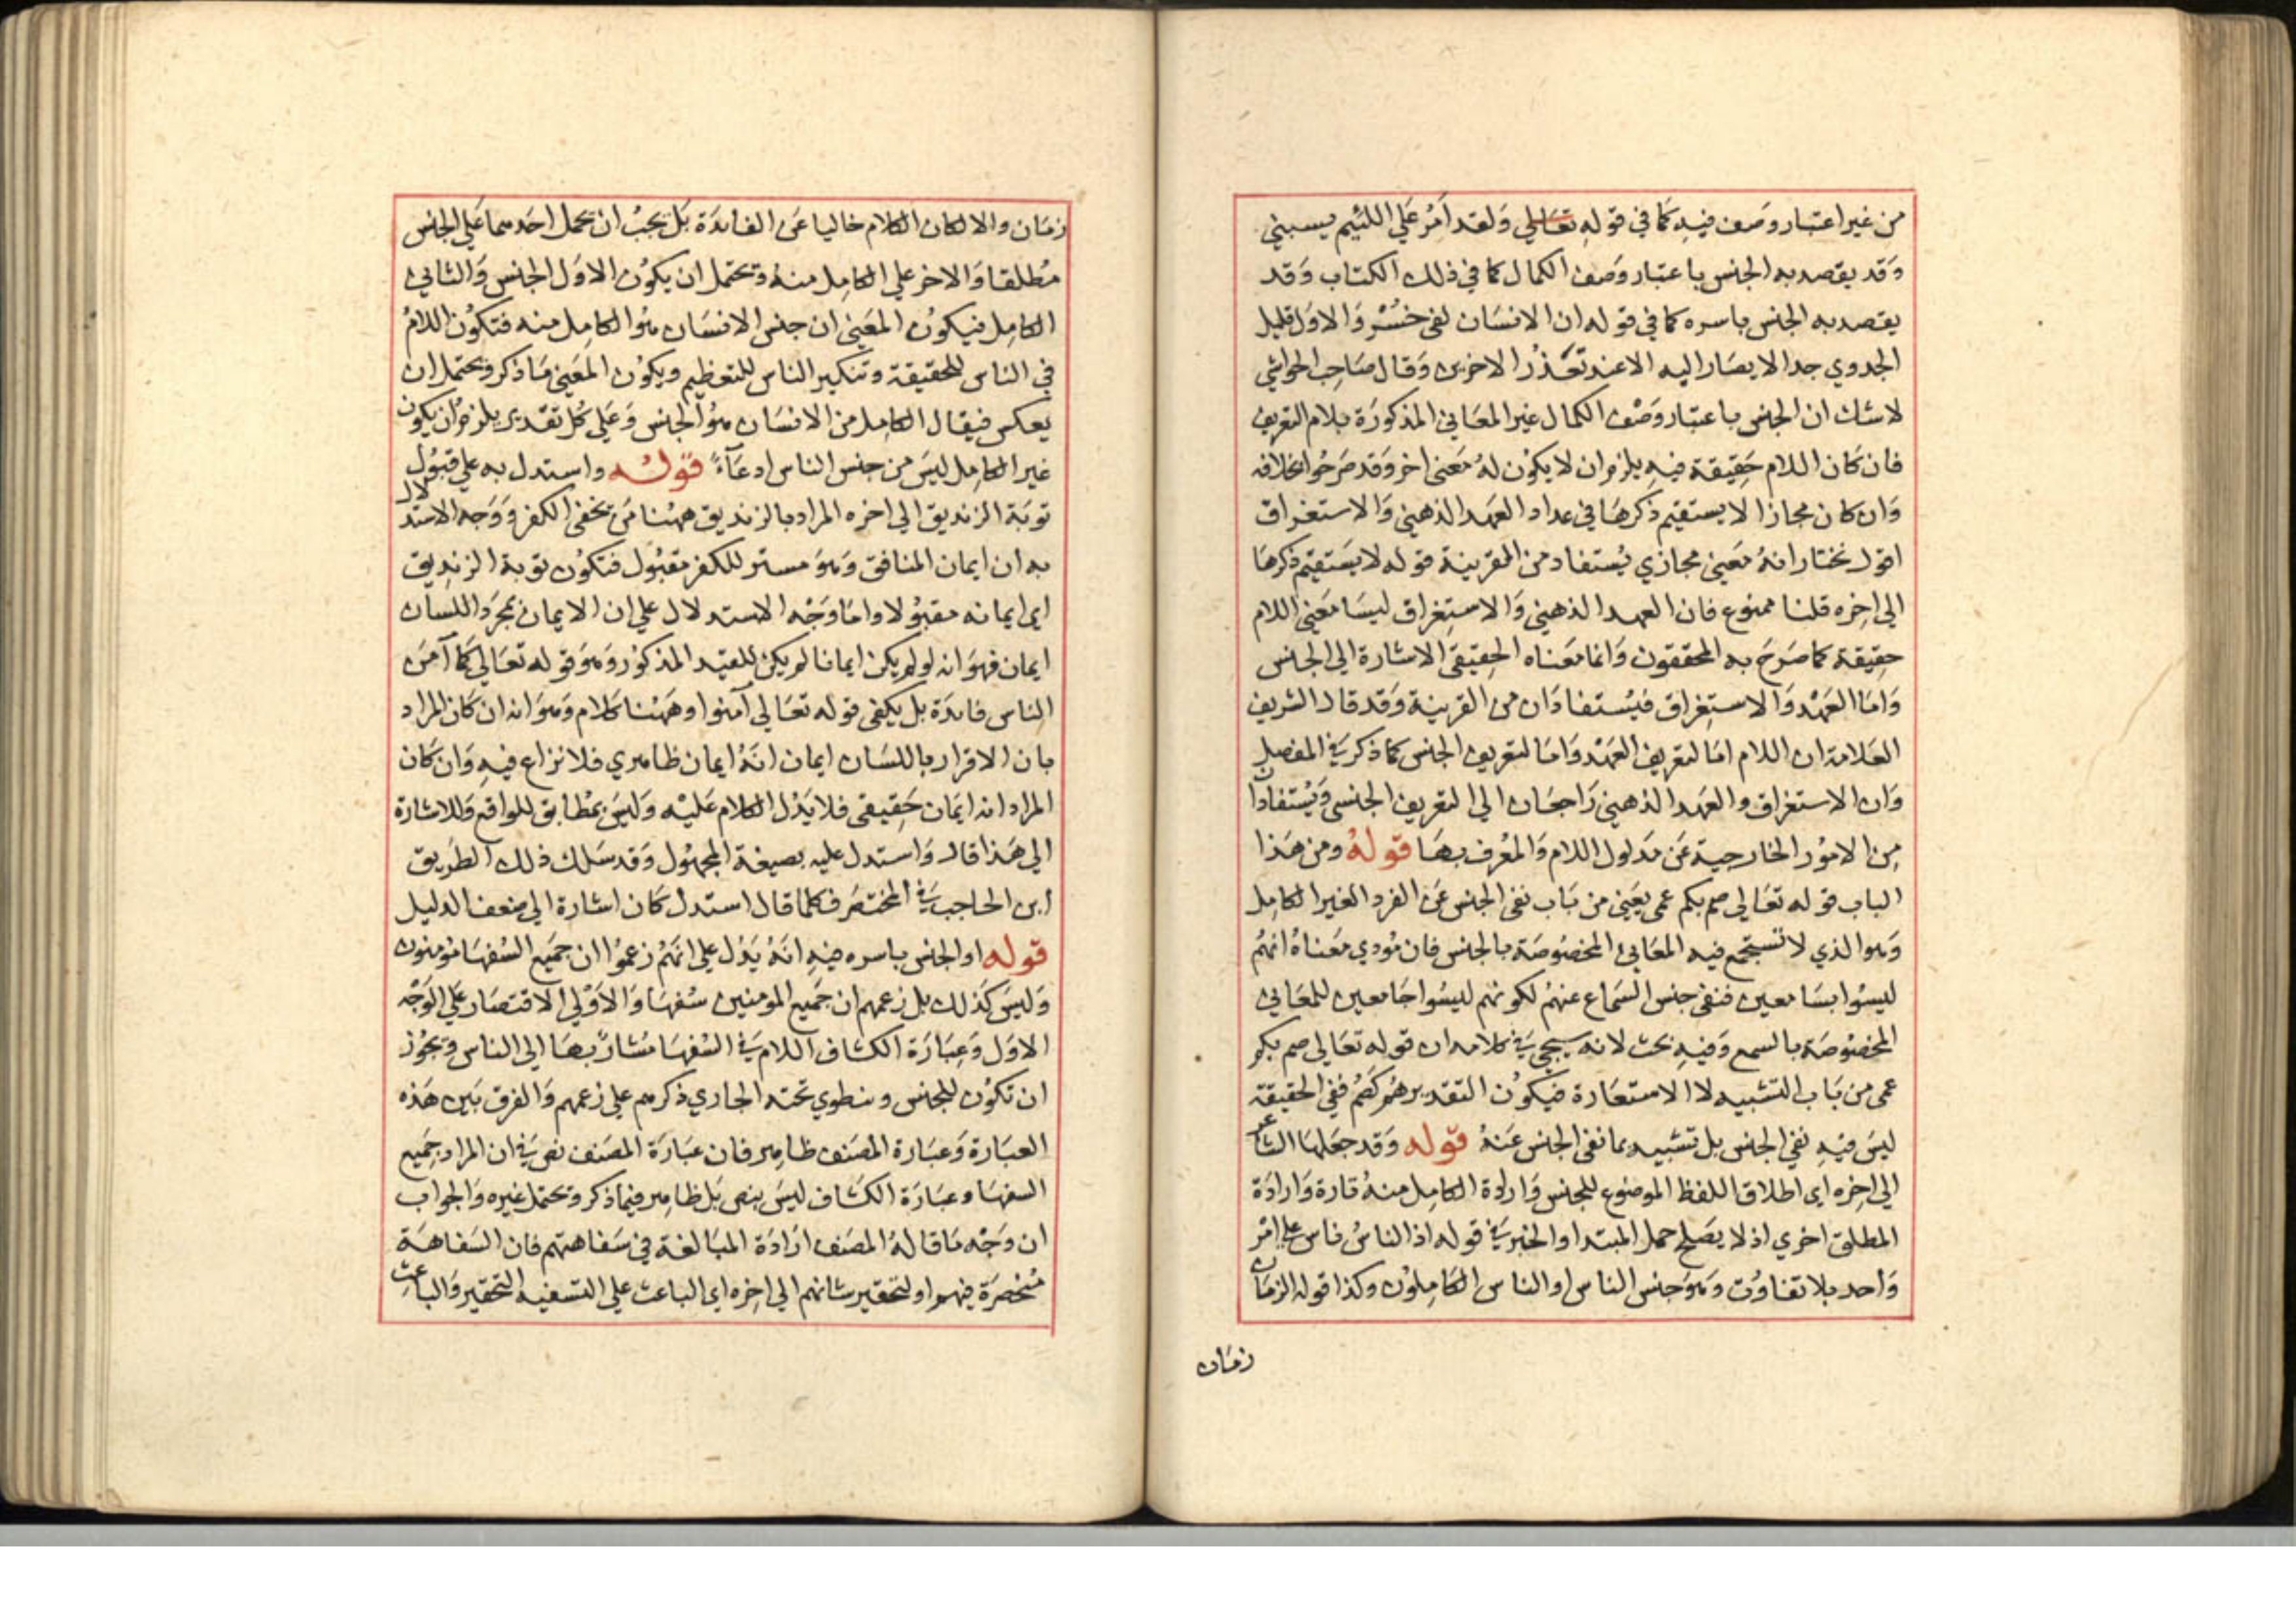 من غير اعتبار وصف فيه كما في قوله تعالي ولقد امر علي اللئيم يسبني
وقد يقصد به الجنس باعتبار وصف الكمال كما في ذلك الكتاب وقد
يقصد به الجنس باسره كما في قوله ان الانسان لفي خسر والاول قليل
الجدوي جدا لا يصار اليه الا عند تعذر الاخرين وقال صاحب الحواشي
لا شك ان الجنس باعتبار وصف الكمال غير المعاني المذكورة بلام التعريف
فان كان اللام حقيقة فيه يلزم ان لا يكون له معني اخر وقد صرحوا بخلافه
وان كان مجازا لا يستقيم ذكرها في عداد العهد الذهني والاستغراق
اقول نختار انه معني مجازي يستفاد من القرينة قوله لا يستقيم ذكرها
الي اخره قلنا ممنوع فان العهد الذهني والاستغراق ليسا معني اللام
حقيقة كما صرح به المحققون وانما معناه الحقيقي الاشارة الي الجنس
واما العهد والاستغراق فيستفادان من القرينة وقد قال الشريف
العلامة ان اللام اما لتعريف العهد واما لتعريف الجنس كما ذكر في المفصل
وان الاستغراق والعهد الذهني راجعان الي التعريف الجنسي ويستفادان
من الامور الخارجية عن مدلول اللام والمعرف بها قوله ومن هذا
الباب قوله تعالي صم بكم عمي يعني من باب نفي الجنس عن الفرد الغير الكامل
وهو الذي لا تستجمع فيه المعاني المخصوصة بالجنس فان مودي معناه انهم
ليسوا بسامعين فنفي جنس السماع عنهم لكونهم ليسوا جامعين للمعاني
المخصوصة بالسمع وفيه بحث لانه سيجي في كلامه ان قوله تعالي صم بكم
عمي من باب التشبيه لا الاستعارة فيكون التقدير هم كصم ففي الحقيقة
ليس فيه نفي الجنس بل تشبيه بما نفي الجنس عنه قوله وقد جعلها الشاعر
الي اخره اي اطلاق اللفظ الموضوع للجنس وارادة الكامل منه تارة وارادة
المطلق اخري اذ لا يصلح حمل المبتدا والخبر في قوله اذ الناس ناس علي امر
واحد بلا تفاوت وهو جنس الناس او الناس الكاملون وكذا قوله الزمان
زمان
زمان والا لكان الكلام خاليا عن الفايدة بل يجب ان يحمل احدهما علي الجنس
مطلقا والاخر علي الكامل منه ويحتمل ان يكون الاول الجنس والثاني
الكامل فيكون المعني ان جنس الانسان هو الكامل منه فتكون اللام
في الناس للحقيقة وتنكير الناس للتعظيم ويكون المعني ما ذكر ويحتمل ان
يعكس فيقال الكامل من الانسان هو الجنس وعلي كل تقدير يلزم ان يكون
غير الكامل ليس من جنس الناس ادعاء قوله واستدل به علي قبول
توبة الزنديق الي اخره المراد بالزنديق ههنا من يخفي الكفر ووجه الاستدلال
به ان ايمان المنافق وهو مستر للكفر مقبول فتكون توبة الزنديق
اي ايمانه مقبولا واما وجه الاستدلال علي ان الايمان بمجرد اللسان
ايمان فهو انه لو لم يكن ايمانا لم يكن للقيد المذكور وهو قوله تعالي كما آمن
الناس فايدة بل يكفي قوله تعالي آمنوا وههنا كلام وهو انه ان كان المراد
بان الاقرار باللسان ايمان انه ايمان ظاهري فلا نزاع فيه وان كان
المراد انه ايمان حقيقي فلا يدل الكلام عليه وليس بمطابق للواقع وللاشارة
الي هذا قال واستدل عليه بصيغة المجهول وقد سلك ذلك الطريق
ابن الحاجب في المختصر فكلما قال استدل كان اشارة الي ضعف الدليل
قوله او الجنس باسره فيه انه يدل علي انهم زعموا ان جميع السفها مومنون
وليس كذلك بل زعمهم ان جميع المومنين سفها والاولي الاقتصار علي الوجه
الاول وعبارة الكشاف اللام في السفها مشار بها الي الناس ويجوز
ان تكون للجنس وينطوي تحته الجاري ذكرهم علي زعمهم والفرق بين هذه
العبارة وعبارة المصنف ظاهر فان عبارة المصنف نص في ان المراد جميع
السفها وعبارة الكشاف ليس بنص بل ظاهر فيما ذكر ويحتمل غيره والجواب
ان وجه ما قاله المصنف ارادة المبالغة في سفاهتهم فان السفاهة
منحصرة فيهم او لتحقير شانهم الي اخره اي الباعث علي التسفيه التحقير والباعث